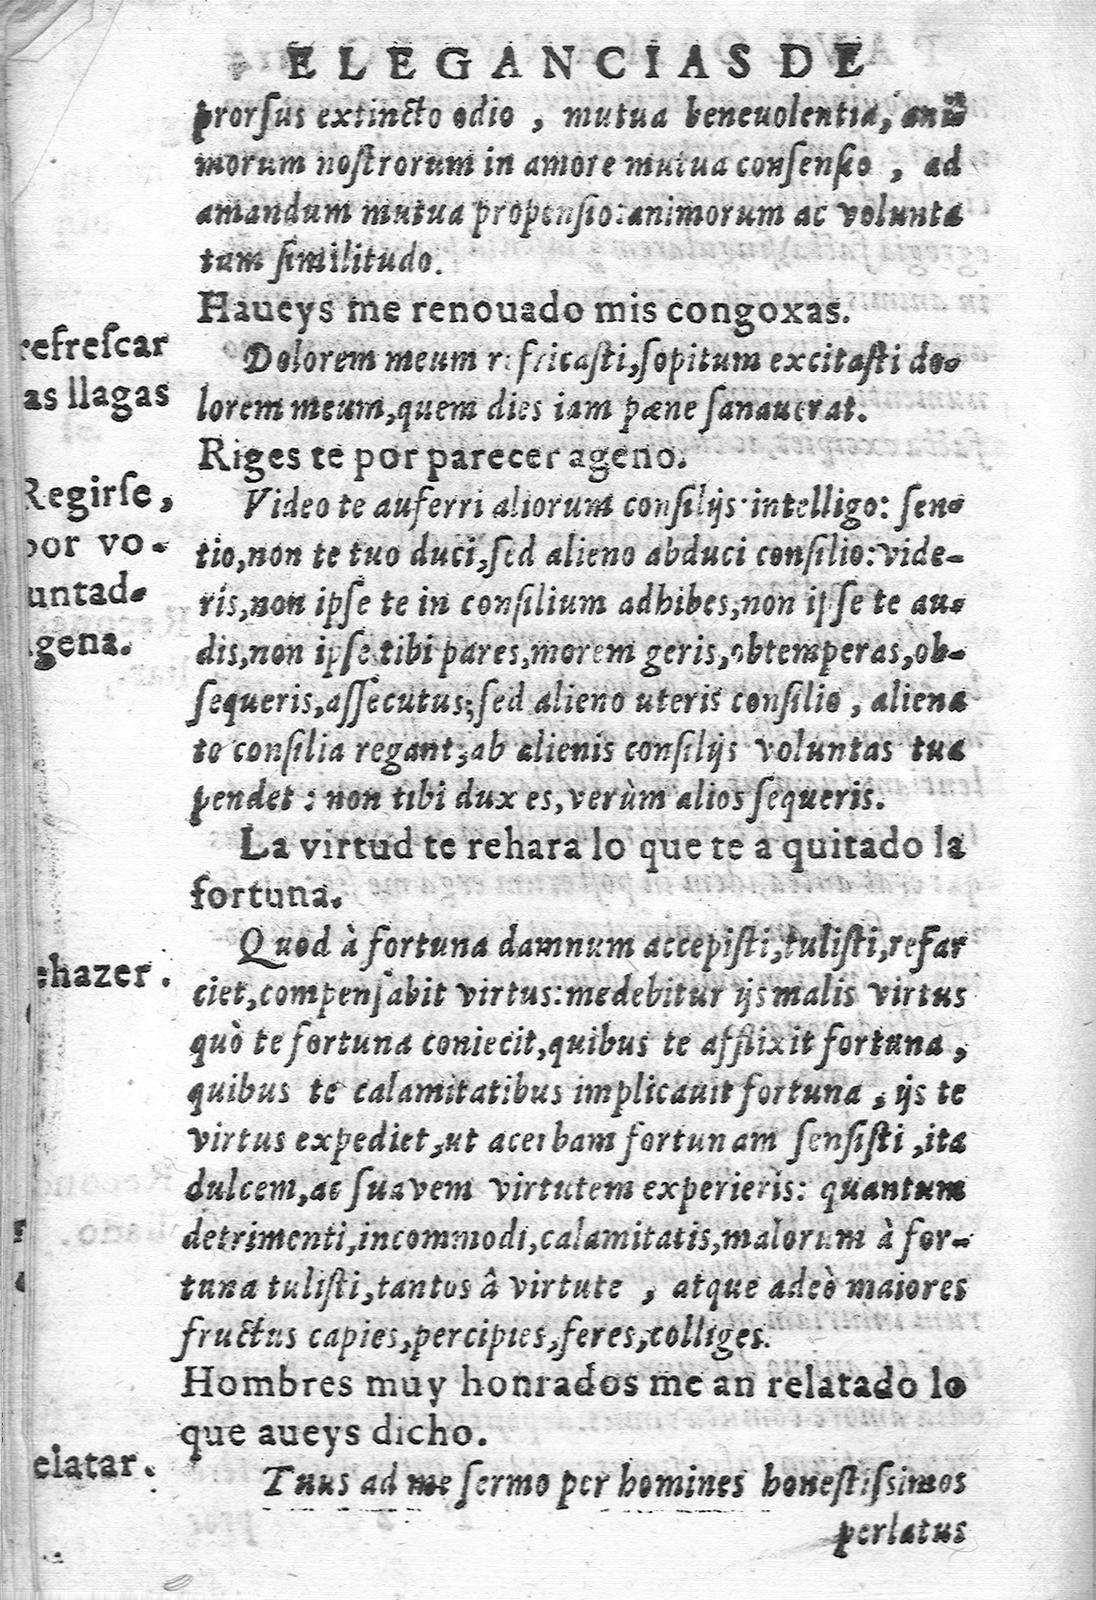 ELEGANCIAS DE
prorſus extincto odio, mutua beneuolentia, ani-
morum noſtrorum in amore mutua conſenſio, ad
amandum mutua propenſio: animorum ac volunta
tum ſimilitudo.
Haueys me renouado mis congoxas.
refreſcar
Dolorem meum refricaſti, ſopitum excitaſti do-
as llagas
lorem meum, quem dies iam pæne ſanauerat.
Riges te por parecer ageno.
Regirſe,
Video te auferri aliorum conſilijs: intelligo: ſen-
por vo-
tio, non te tuo duci, ſed alieno abduci conſilio: vide-
untad-
ris, non ipſe te in conſilium adhibes, non ipſe te au-
agena.
dis, non ipſe tibi pares, morem geris, obtemperas, ob-
ſequeris, aſſecutus; ſed alieno uteris conſilio, aliena
te conſilia regant; ab alienis conſilijs voluntas tua
pendet: non tibi dux es, verùm alios ſequeris.
La virtud te rehara lo que te a quitado la
fortuna.
Quod à fortuna damnum accepiſti, tuliſti, reſar
ehazer.
ciet, compenſabit virtus: medebitur ijs malis virtus
quò te fortuna coniecit, quibus te afflixit fortuna,
quibus te calamitatibus implicauit fortuna, ijs te
virtus expediet, ut acerbam fortunam ſenſiſti, ita
dulcem, ac ſuavem virtutem experieris: quantum
detrimenti, incommodi, calamitatis, malorum à for-
tuna tuliſti, tantos â virtute, atque adeò maiores
fructus capies, percipies, feres, colliges.
Hombres muy honrados me an relatado lo
que aueys dicho.
elatar.
Tuus ad me ſermo per homines honeſtiſsimos
perlatus